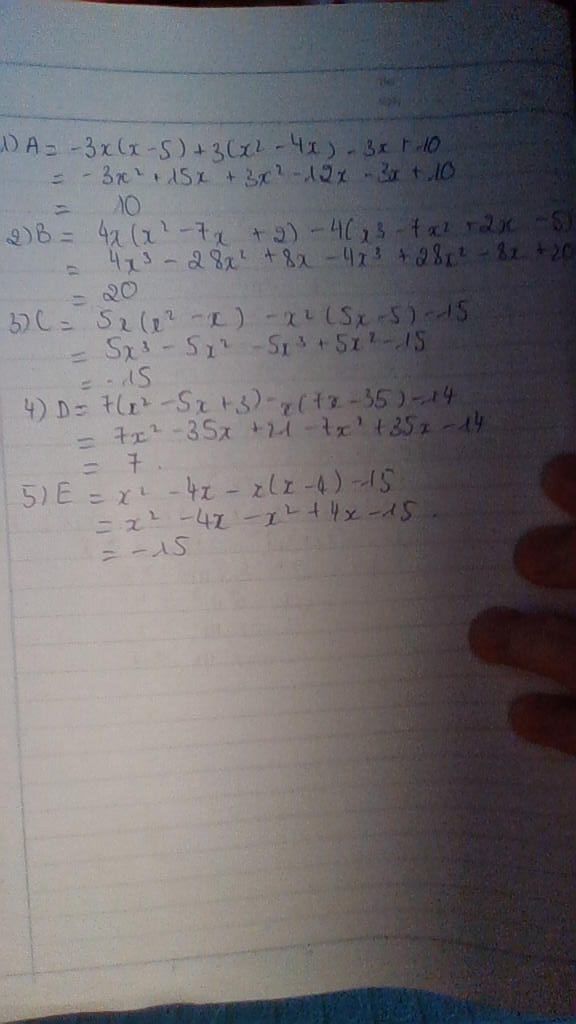 1) A = -3x(x-5) + 3(x² - 4x) - 3x + 10
= -3x² + 15x + 3x² - 12x - 3x + 10
= 10
2) B = 4x(x² - 7x + 2) - 4(x³ - 7x² + 2x - 5)
= 4x³ - 28x² + 8x - 4x³ + 28x² - 8x + 20
= 20
3) C = 5x(x² - x) - x²(5x - 5) - 15
= 5x³ - 5x² - 5x³ + 5x² - 15
= -15
4) D = 7(x² - 5x + 3) - x(7x - 35) - 14
= 7x² - 35x + 21 - 7x² + 35x - 14
= 7.
5) E = x² - 4x - x(x - 4) - 15
= x² - 4x - x² + 4x - 15.
= -15